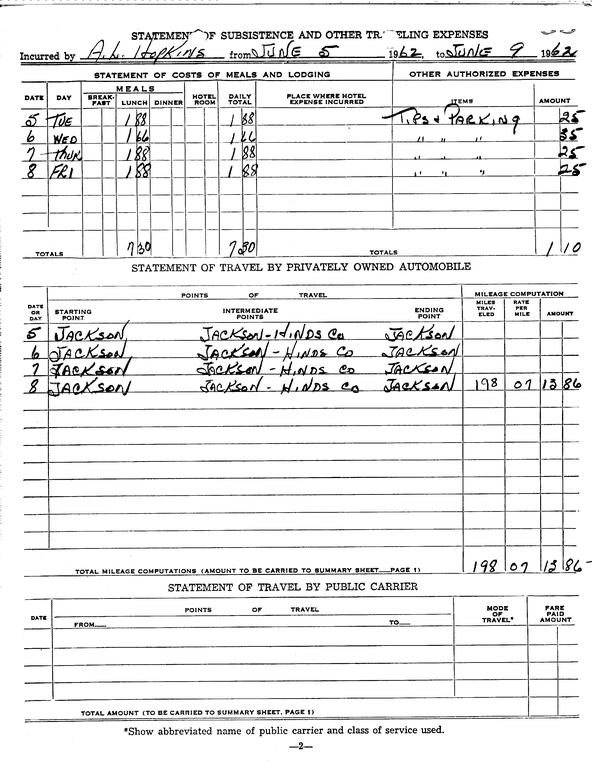 STATEMENT OF SUBSISTENCE AND OTHER TRAVELING EXPENSES
Incurred by A.L. HOPKINS from JUNE 5 1962, to JUNE 9 1962
STATEMENT OF COSTS OF MEALS AND LODGING OTHER AUTHORIZED EXPENSES
DATE DAY MEALS BREAK-FAST LUNCH DINNER HOTEL ROOM DAILY TOTAL PLACE WHERE HOTEL EXPENSE INCURRED ITEMS AMOUNT
5 TUE 1 88 1 88 TIPS & PARKING 25
6 WED 1 66 1 66 " " " 35
7 THUR 1 88 1 88 " " " 25
8 FRI 1 88 1 88 " " " 25
TOTALS 7 30 7 30 TOTALS 1 10
STATEMENT OF TRAVEL BY PRIVATELY OWNED AUTOMOBILE
POINTS OF TRAVEL MILEAGE COMPUTATION
DATE OR DAY STARTING POINT INTERMEDIATE POINTS ENDING POINT MILES TRAV-ELED RATE PER MILE AMOUNT
5 JACKSON JACKSON-HINDS CO JACKSON
6 JACKSON JACKSON - HINDS CO JACKSON
7 JACKSON JACKSON - HINDS CO JACKSON
8 JACKSON JACKSON - HINDS CO JACKSON 198 07 13 86
TOTAL MILEAGE COMPUTATIONS (AMOUNT TO BE CARRIED TO SUMMARY SHEET PAGE 1) 198 07 13 86
STATEMENT OF TRAVEL BY PUBLIC CARRIER
DATE POINTS OF TRAVEL FROM TO MODE OF TRAVEL* FARE PAID AMOUNT
TOTAL AMOUNT (TO BE CARRIED TO SUMMARY SHEET, PAGE 1)
*Show abbreviated name of public carrier and class of service used.
—2—